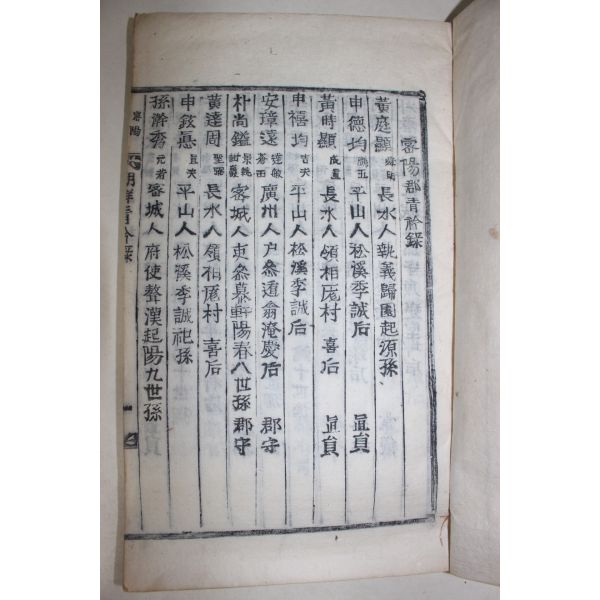 密陽郡青衿錄
黃庭顯 長水人 執義歸園起源孫
申德均 平山人 松溪季誠后 直員
黃時顯 長水人 領相厖村 喜后 直員
申禧均 平山人 松溪季誠后
安璋遠 廣州人 戶參遁翁淹慶后 郡守
朴尚鎰 密城人 吏參慕軒陽春八世孫 郡守
黃達周 長水人 領相厖村 喜后
申鉉 平山人 松溪季誠祀孫
孫 密城人 府使聱漢起陽九世孫
密陽
青衿錄